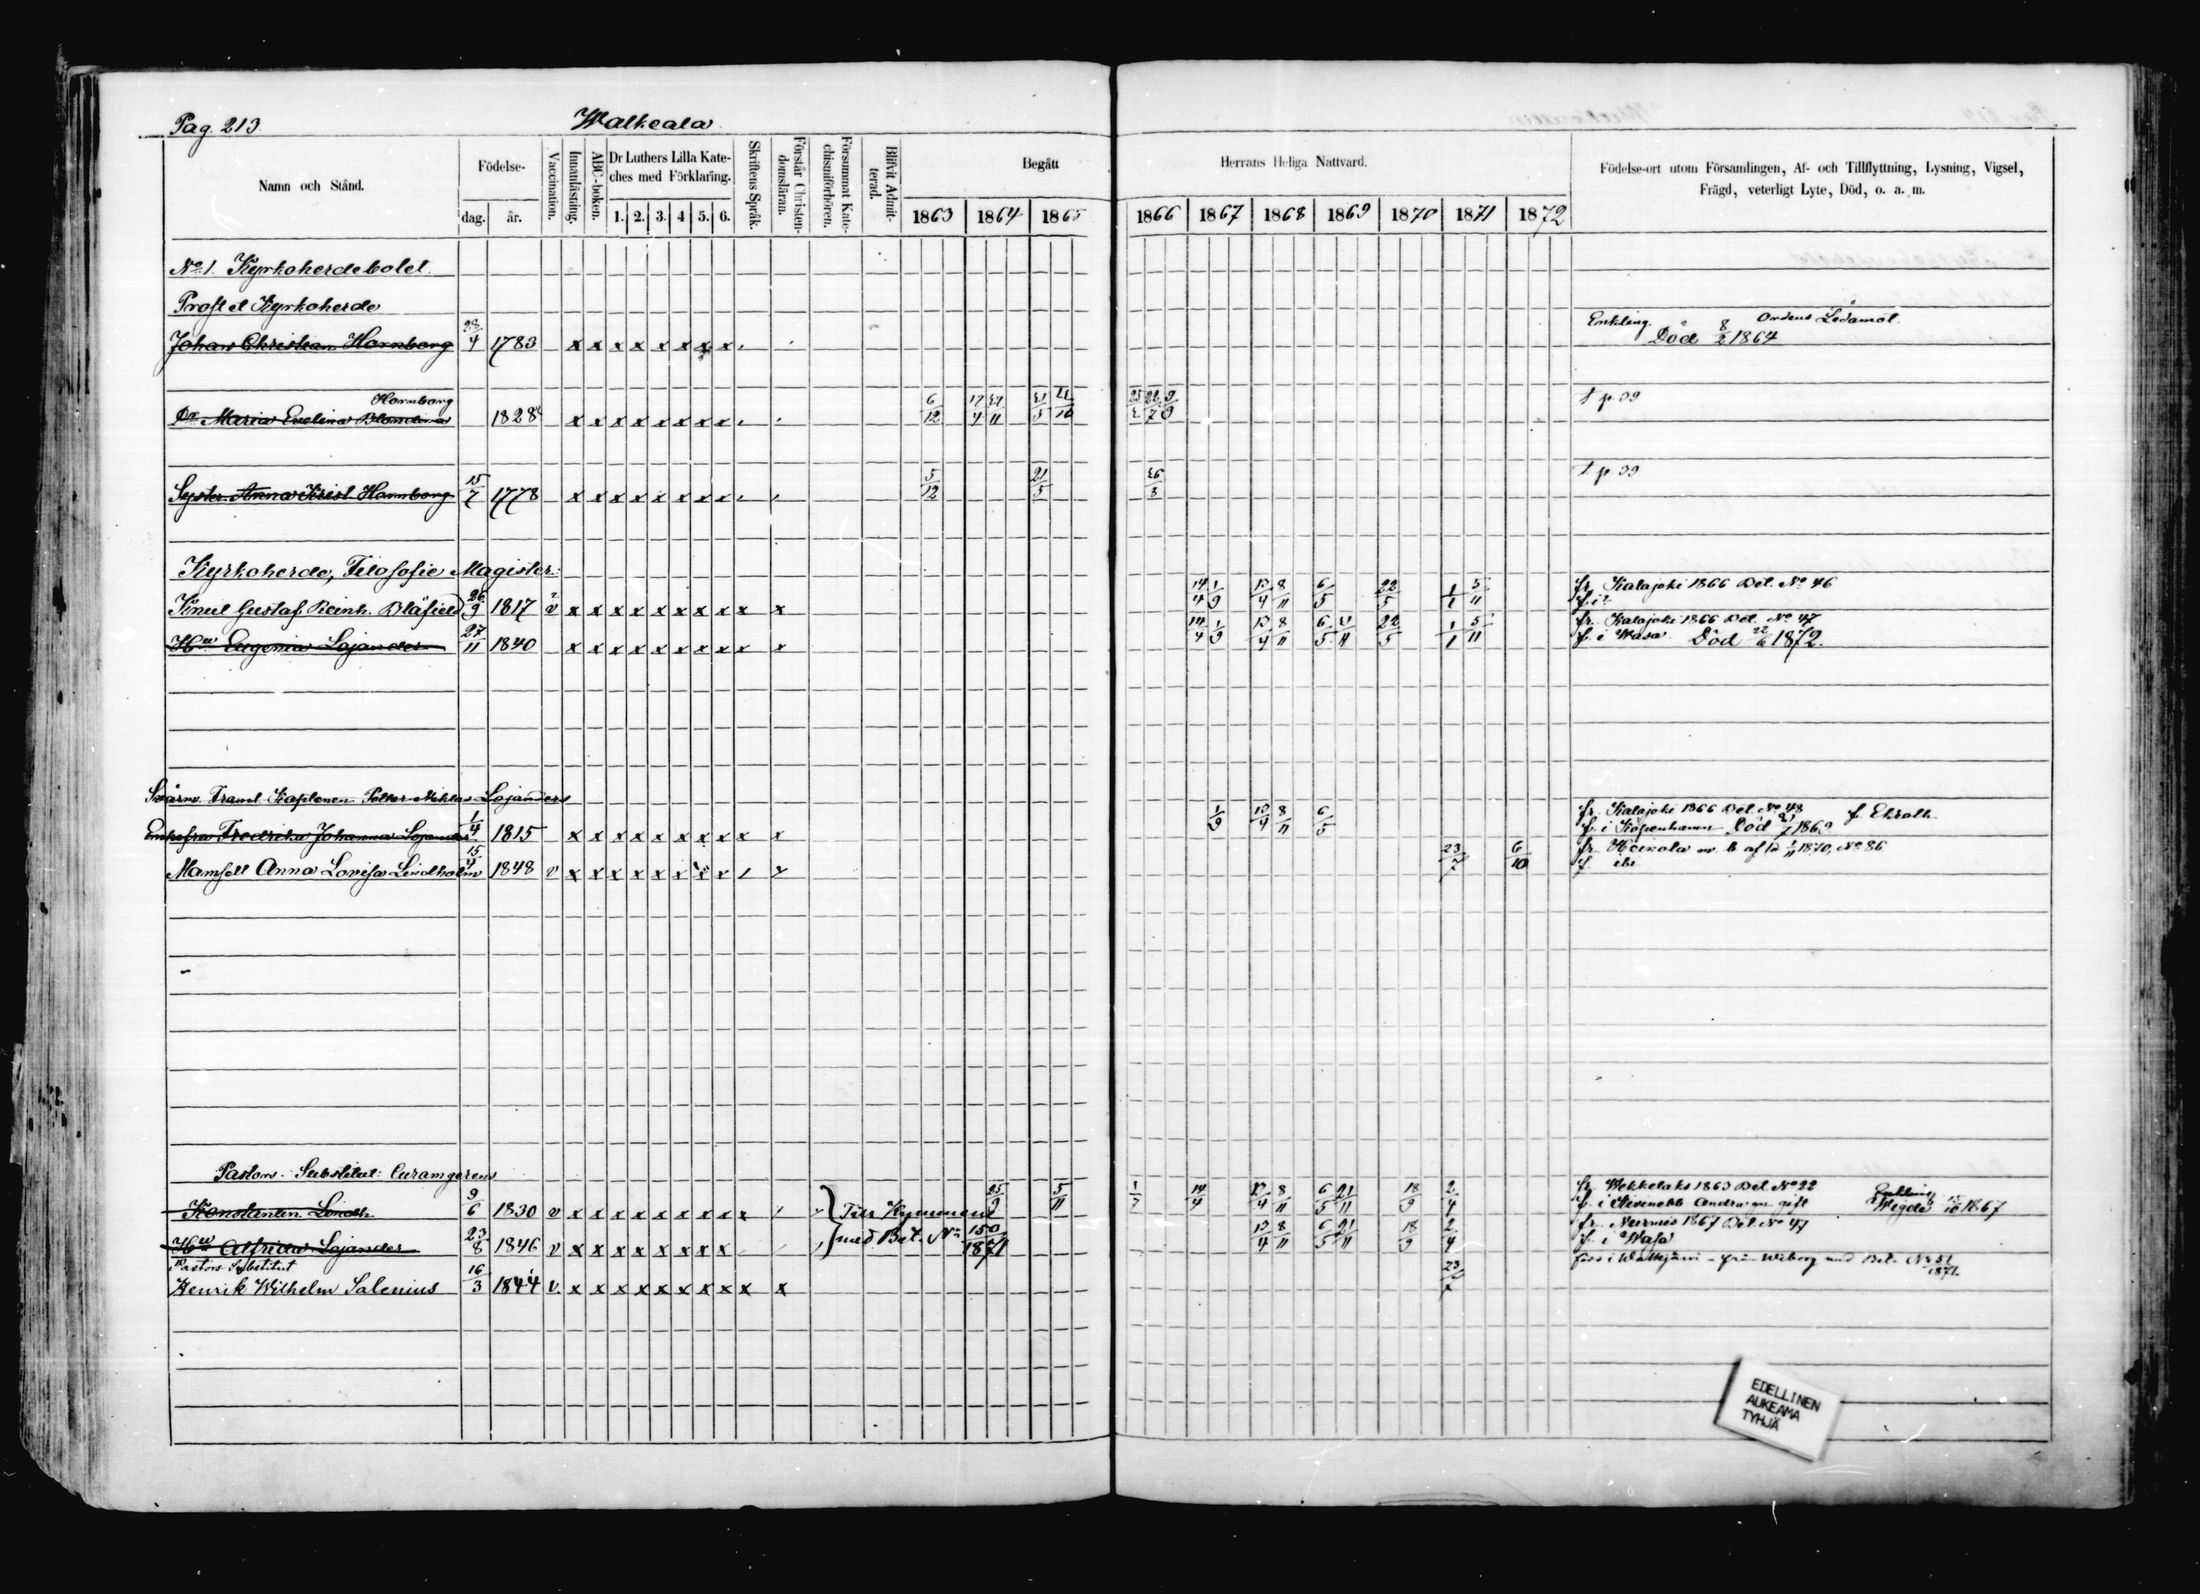 Pag. 213 Walkeala
Namn och Stånd. Födelse- dag. år. Vaccination. Innanläsning. ABC-boken. Dr Luthers Lilla Kateches med Förklaring. 1. 2. 3. 4 5. 6. Skriftens Språk. Förstår Christendomsläran. Försummat Katechismiförhören. Blifvit Admitterad. Begått 1863 1864 1865 Herrans Heliga Nattvard. 1866 1867 1868 1869 1870 1871 1872 Födelse-ort utom Församlingen, Af- och Tillflyttning, Lysning, Vigsel, Frägd, veterligt Lyte, Död, o. a. m.
No 1. Kyrkoherdebolet
Prost et Kyrkoherde
Johan Christian Hornborg 4 1783 x x x x x x x x Enkling. Ordens Ledamot. Död 8/2 1864
Hornborg
Dr Maria Evelina 1828 x x x x x x x x 6/12 p 39
Syster Anna Krist Hornborg 15/7 1778 x x x x x x x x 5/12 21/5 p 39
Kyrkoherde, Filosofie Magister
Knut Gustaf Reinh. Blåfield 26/9 1817 v x x x x x x x x x x 14/4 1/9 13/4 8/11 6/5 22/5 1/1 5/11 fr. Kalajoki 1866 Bet. No 46
f. i ?
Hu Eugenia Lajander 27/11 1840 x x x x x x x x x x 14/4 1/9 13/4 8/11 6/5 21/11 22/5 1/1 5/11 fr. Kalajoki 1866 Bet. No 47
f. i Wasa Död 22/6 1872.
Svärm. Framl. Kaplanen Petter Niklas Lajanders
Enkefru Fredrika Johanna Lajander 1/4 1815 x x x x x x x x x x 1/9 13/4 8/11 6/5 fr. Kalajoki 1866 Bet. No 48 f. Ekroth
f. i Köpenhamn Död 1869
Mamsell Anna Lovisa Lindholm 15/4 1848 v x x x x x x x x 23/7 6/10 fr. Heinola 1870, No 86
f. ibi
Pastors-Substitut: Curamgerens
Konstantin Lindh 9/6 1830 v x x x x x x x x x Till Kymmene 25/9 5/11 1/7 14/4 13/4 8/11 6/5 21/11 18/9 2/4 fr. Wekkelaks 1863 Bet. No 22 Enkling
f. i Kisinebb Andra gn. gift Wigde 1867
Hu Alfrida Lajander 23/8 1846 v x x x x x x x x med Bet. No 150/1871 13/4 8/11 6/5 21/11 18/9 2/4 fr. Nurmis 1867 Bet. No 47
f. i Wasa
Pastors Substitut
Henrik Wilhelm Salenius 16/3 1844 v. x x x x x x x x x x 23/7 född i Walkjärvi - från Wiborg med Bet. No 51/1871.
EDELLINEN
AUKEAMA
TYHJÄ